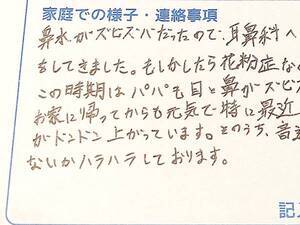 家庭での様子・連絡事項
鼻水がズビズバだったので、耳鼻科へ
をしてきました。もしかしたら花粉症な
この時期はパパも目と鼻がズビズ
お家に帰ってからも元気で特に最近
がドンドン上がっています。そのうち、音
ないかハラハラしております。
記